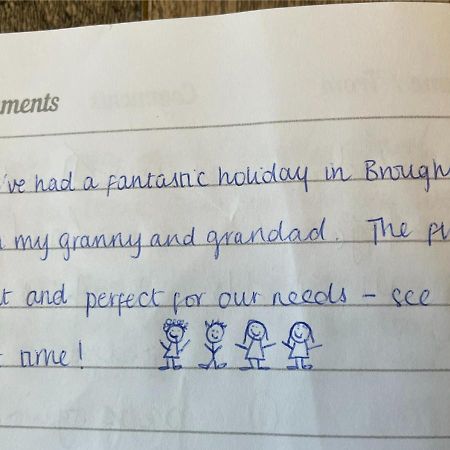 ments
've had a fantastic holiday in Brough
my granny and grandad. The
and perfect for our needs - see
time!